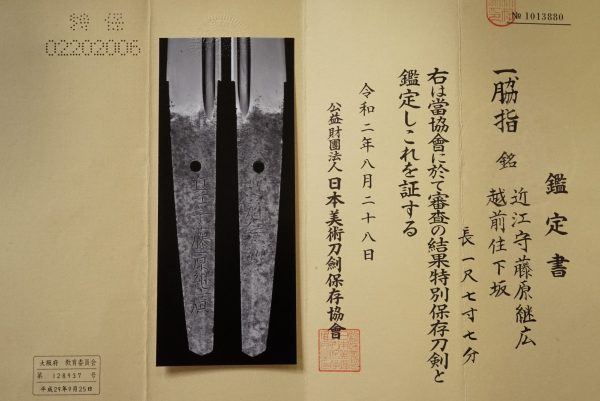 № 1013880
鑑定書
一、脇指 銘 近江守藤原継広
越前住下坂
長 一尺七寸七分
右は當協會に於て審査の結果特別保存刀剣と
鑑定しこれを証する
令和二年八月二十八日
公益財團法人 日本美術刀剣保存協會
特保
02202006
大阪府 教育委員会
第 128937 号
平成29年9月25日